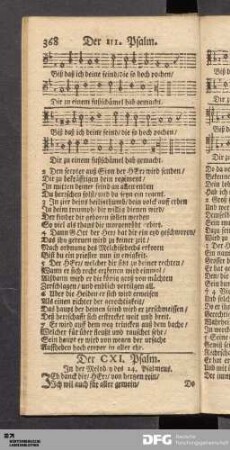 368 Der 111. Psalm.
Biß daß ich deine feind/die so hoch pochen/
Dir zu einem fußschämel hab gemacht.
Biß daß ich deine feind/die so hoch pochen/
Dir zu einem fußschämel hab gemacht.
2 Den scepter auß Sion der HErr wird senden/
Dir zu bekräfftigen dein regiment/
In mitten deiner feind an allen enden
Du herrschen solt/ und
3 In zier deins heiligthums/ dein volck auff erden
So viel als thaus die morgenröthe
4 Dann GOtt der HErr hat dir ein eyd geschworen/
Das ihn gereuen wird zu keiner zeit/
Nach ordnung des Melchisedechs erkoren
Bist du ein priester nun in ewigkeit.
5 Der HErr/ welcher dir sitzt zu deiner rechten/
Wann er sich recht erzürnen wird einmal/
Alsdann wird er die König
Zerschlagen/ und endlich vertilgen all.
6 Wer die Heiden er sich wird erweisen
Als einen richter der
Das haupt der deinen feind wird er zerschmeissen/
Deß herrschafft sich erstrecket weit und breit.
7 Er wird auß dem weg trincken auß dem bache/
Welcher für über fleußt und rauschet sehr/
Sein haupt er wird von wegen der ursache
Auffheben hoch empor in aller ehr.
Der CXI. Psalm.
In der Melod. des 24. Psalmens.
ICh danck dir/ HErr/ von hertzen rein/
Ich wil auch für aller gemein/
De
DFG Deutsche
Forschungsgemeinschaft